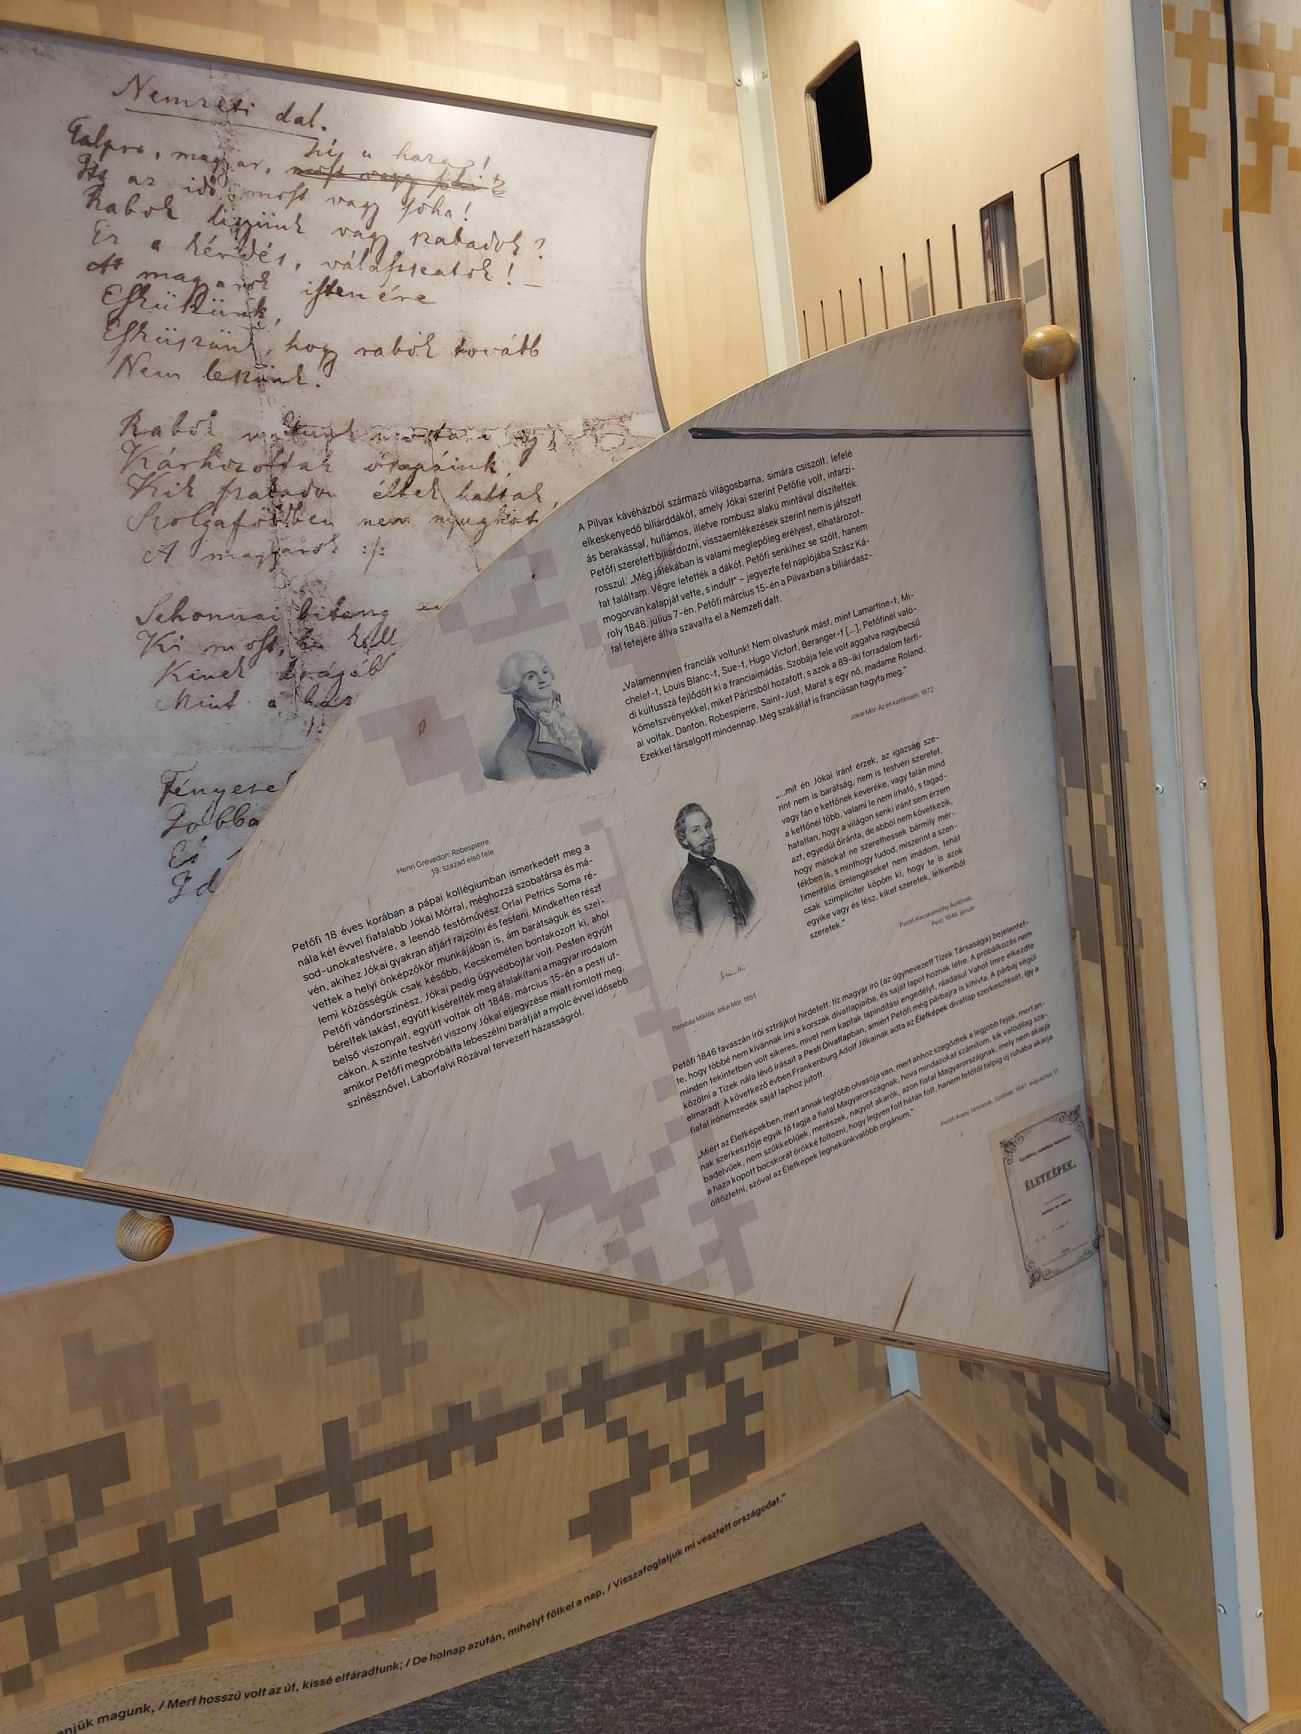 Nemzeti dal.
Talpra, magyar, hí a haza!
Itt az idő, most vagy soha!
Rabok legyünk vagy szabadok?
Ez a kérdés, válasszatok! –
A magyarok istenére
Esküszünk,
Esküszünk, hogy rabok tovább
Nem leszünk.
Rabok
Kárhozottak ősapáink,
Kik szabadon éltek haltak,
Szolgaföldben nem
A magyarok :/:
Sehonnai bitang
Ki most, ha kell
Kinek drágább
Mint a
Fényese
A Pilvax kávéházból származó világosbarna, simára csiszolt, lefelé
elkeskenyedő biliárddákót, amely Jókai szerint Petőfié volt, intarzi-
ás berakással, hullámos, illetve rombusz alakú mintával díszítették.
Petőfi szeretett biliárdozni, visszaemlékezések szerint nem is játszott
rosszul: „Még játékában is valami meglepőleg erélyest, elhatározot-
tat találtam. Végre letették a dákót. Petőfi senkihez se szólt, hanem
mogorván kalapját vette, s indult" – jegyezte fel naplójába Szász Ká-
roly 1848. július 7-én. Petőfi március 15-én a Pilvaxban a biliárdasz-
tal tetejére állva szavalta el a Nemzeti dalt.
„Valamennyien franciák voltunk! Nem olvastunk mást, mint Lamartine-t, Mi-
chelet-t, Louis Blanc-t, Sue-t, Hugo Victort, Beranger-t [...], Petőfinél való-
di kultusszá fejlődött ki a franciaimádás. Szobája tele volt aggatva nagybecsű
kőmetszvényekkel, miket Párizsból hozatott, s azok a 89-iki forradalom férfi-
ai voltak. Danton, Robespierre, Saint-Just, Marat s egy nő, madame Roland.
Ezekkel társalgott mindennap. Még szakállát is franciásan hagyta meg."
Jókai Mór: Az én kortársaim, 1872
„...mit én Jókai iránt érzek, az igazság sze-
rint nem is barátság, nem is testvéri szeretet,
vagy tán e kettőnek keveréke, vagy talán mind
a kettőnél több, valami le nem írható, s tagad-
hatatlan, hogy a világon senki iránt sem érzem
azt, egyedül őiránta, de abból nem következik,
hogy másokat ne szerethessek bármily mér-
tékben is, s minthogy tudod, miszerint a szen-
timentális ömlengéseket nem imádom, tehát
csak szimpliciter köpöm ki, hogy te is azok
egyike vagy és lész, kiket szeretek, lélkemből
szeretek."
Henri Grevedon: Robespierre,
19. század első fele
Petőfi 18 éves korában a pápai kollégiumban ismerkedett meg a
nála két évvel fiatalabb Jókai Mórral, méghozzá szobatársa és má-
sod-unokatestvére, a leendő festőművész Orlai Petrics Soma ré-
vén, akihez Jókai gyakran átjárt rajzolni és festeni. Mindketten részt
vettek a helyi önképzőkör munkájában is, ám barátságuk és szel-
lemi közösségük csak később, Kecskeméten bontakozott ki, ahol
Petőfi vándorszínész, Jókai pedig ügyvédbojtár volt. Pesten együtt
béreltek lakást, együtt kísérelték meg átalakítani a magyar irodalom
belső viszonyait, együtt voltak ott 1848. március 15-én a pesti ut-
cákon. A szinte testvéri viszony Jókai eljegyzése miatt romlott meg,
amikor Petőfi megpróbálta lebeszélni barátját a nyolc évvel idősebb
színésznővel, Laborfalvi Rózával tervezett házasságról.
Barabás Miklós: Jókai Mór, 1853
Petőfi 1846 tavaszán írói sztrájkot hirdetett: tíz magyar író (az úgynevezett Tízek Társasága) bejelentet-
te, hogy többé nem kívánnak írni a korszak divatlapjaiba, és saját lapot hoznak létre. A próbálkozás nem
minden tekintetben volt sikeres, mivel nem kaptak lapindítási engedélyt, ráadásul Vahot Imre elkezdte
közölni a Tízek nála lévő írásait a Pesti Divatlapban, amiért Petőfi még párbajra is kihívta. A párbaj végül
elmaradt. A következő évben Frankenburg Adolf Jókainak adta az Életképek divatlap szerkesztését, így a
fiatal írónemzedék saját laphoz jutott.
„Miért az Életképekben, mert annak legtöbb olvasója van, mert ahhoz szegődtek a legjobb fejek, mert an-
nak szerkesztője egyik fő tagja a fiatal Magyarországnak, hova mindazokat számítom, kik valódilag sza-
badelvűek, nem szűkkeblűek, merészek, nagyot akarók, azon fiatal Magyarországnak, mely nem akarja
a haza kopott bocskorát örökké foltozni, hogy legyen folt hátán folt, hanem tetőtől talpig új ruhába akarja
öltöztetni, szóval az Életképek legnekünkvalóbb orgánum."
Petőfi Arany Jánosnak, Szatmár, 1847. augusztus 17.
ÉLETKÉPEK.
anjük magunk, / Mert hosszú volt az út, kissé elfáradtunk; / De holnap azután, mihelyt fölkel a nap, / Visszafoglaljuk mi vesztett országodat."